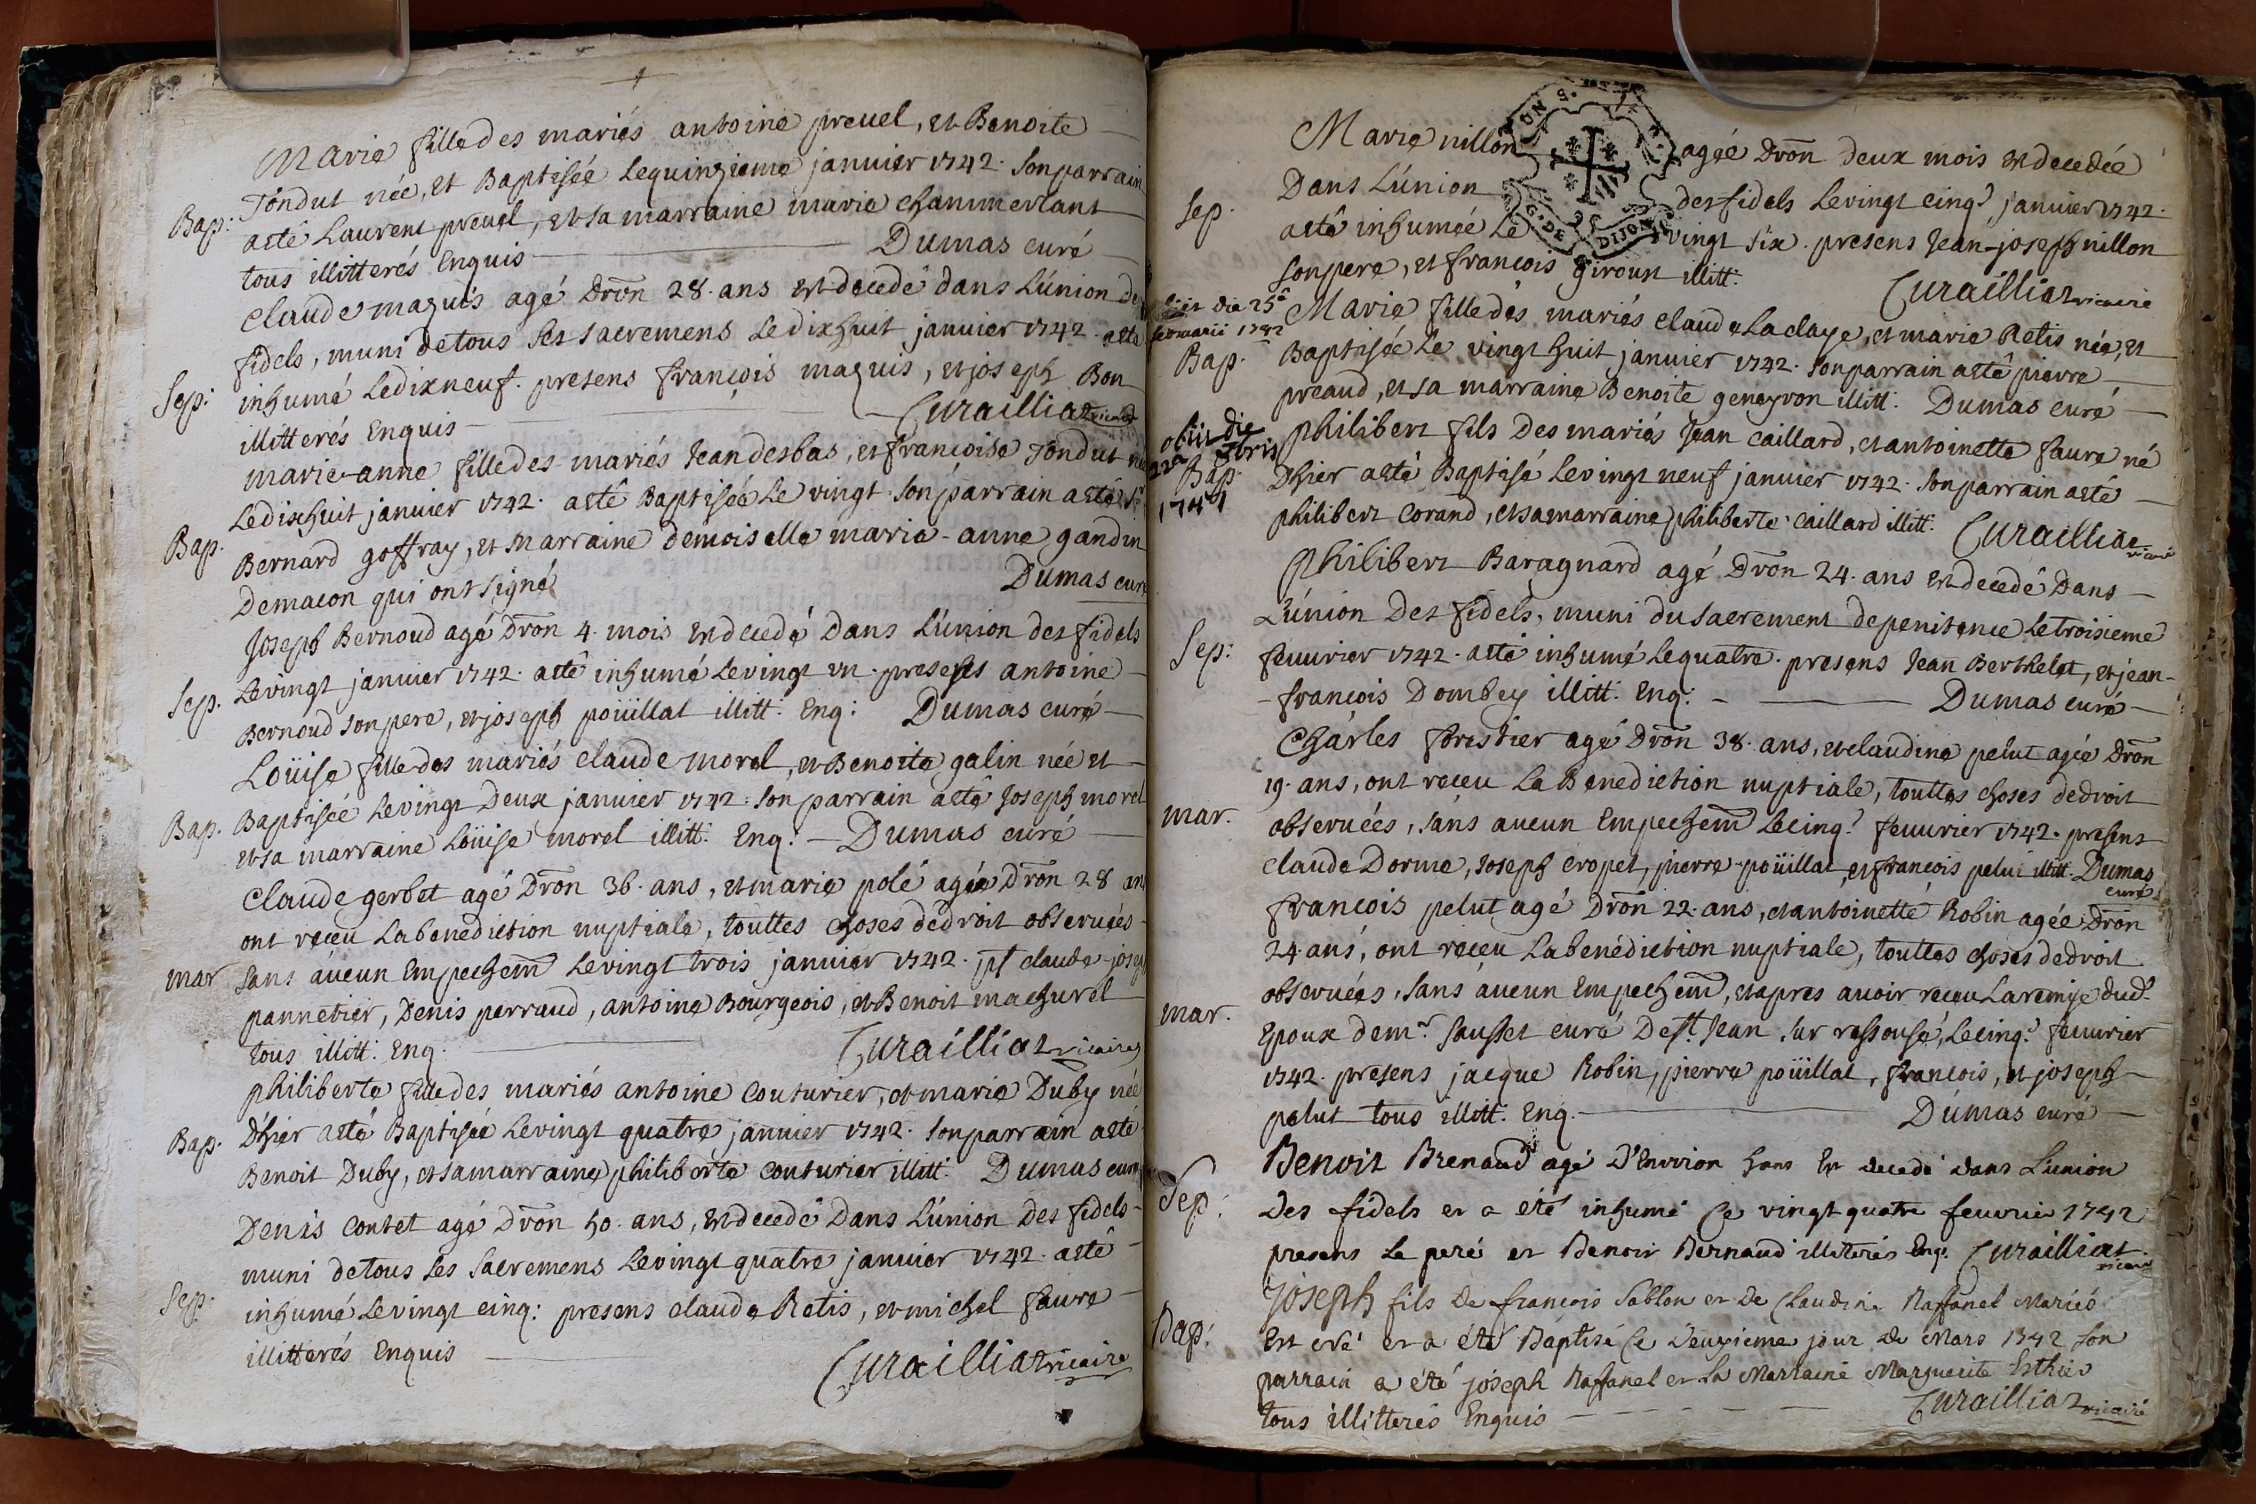 Marie fille des mariés antoine preuel, et Benoite
Bap: Tondut née, et Baptisée le quinzieme janvier 1742. son parrain
a eté Laurent preuel, et sa marraine marie chammerlant
tous illitterés Enquis Dumas curé
Claude maguis agé Dron 28. ans est decedé dans L'union des
fidels, muni de tous ses sacremens le dixhuit janvier 1742. a eté
Sep: inhumé le dixneuf. presens françois maguis, et joseph Bon
illitterés Enquis Curailliat vicaire
marie-anne fille des mariés Jean desbas, et francoise Tondut née
le dixhuit janvier 1742. a eté Baptisée le vingt. son parrain a eté Sr.
Bap. Bernard goffray, et marraine demoiselle marie-anne gandin
Demacon qui ont signé Dumas curé
Joseph Bernoud agé Dron 4. mois est decedé dans L'union des fidels
Sep. le vingt janvier 1742. a eté inhumé le vingt un. presens antoine
Bernoud son pere, et joseph poüillat illitt. Enq: Dumas curé
Loüise fille des mariés claude morel, et Benoite galin née et
Bap. Baptisée le vingt Deux janvier 1742. son parrain a eté Joseph morel
et sa marraine Loüise morel illitt. Enq: Dumas curé
Claude gerbet agé Dron 36. ans, et marie polé agée Dron 28 ans
ont receu la benediction nuptiale, touttes choses de droit observées
mar sans aucun Empechem le vingt trois janvier 1742. pst claude-joseph
pannetier, Denis perraud, antoine Bourgeois, et Benoit machurel
tous illitt. Enq. Curailliat vicaire
philiberte fille des mariés antoine couturier, et marie Duby née
Bap. D'hier a eté Baptisée le vingt quatre janvier 1742. son parrain a eté
Benoit Duby, et sa marraine philiberte couturier illitt. Dumas curé
Denis contet agé Dron 50. ans, est decedé Dans L'union Des fidels
muni de tous ses sacremens le vingt quatre janvier 1742. a eté
Sep: inhumé le vingt cinq: presens claude Retis, et michel faure
illitterés Enquis Curailliat vicaire
Marie nillon agée Dron deux mois est decedée
Sep. Dans L'union des fidels le vingt cinq janvier 1742.
G. DE DIJON
a eté inhumée le vingt six. presens Jean-joseph nillon
son pere, et francois giroun illitt. Curailliat vicaire
obiit die 25a januarii 1742
Marie fille des mariés claude Laclaye, et marie Retis née, et
Bap. Baptisée le vingt huit janvier 1742. son parrain a eté pierre
preaud, et sa marraine Benoite geneyron illitt. Dumas curé
obiit die
22a 7bris
1747
philibert fils Des mariés Jean caillard, et antoinette faure né
Bap. D'hier a eté Baptisé le vingt neuf janvier 1742. son parrain a eté
philibert corand, et sa marraine philiberte caillard illitt. Curailliat vicaire
philibert Baragnard agé Dron 24. ans est decedé Dans
L'union Des fidels, muni du sacrement de penitence le troisieme
Sep: feuurier 1742. a eté inhumé le quatre. presens Jean Berthelet, et jean-
-francois Dombey illitt. Enq: Dumas curé
Charles forestier agé Dron 38. ans, et claudine pelut agée Dron
19. ans, ont receu la Benediction nuptiale, touttes choses de droit
mar. observées, sans aucun Empechem le cinq feuurier 1742. presens
claude Dorme, Joseph cropet, pierre poüillat, et francois pelut illitt. Dumas curé
francois pelut agé Dron 22. ans, et antoinette Robin agée Dron
24 ans, ont receu la benédiction nuptiale, touttes choses de droit
observées, sans aucun Empechem, et apres auoir receu La remise dud.
mar. Epoux de mr. sausset curé De st. Jean sur ressouse, le cinq feuurier
1742. presens jacque Robin, pierre poüillat, francois, et joseph
pelut tous illitt. Enq. Dumas curé
Benoit Brenaud agé D'Environ hans Est decedé dans L'union
Sep: Des fidels et a été inhumé Ce vingt quatre feuurier 1742
presens Le peré et Benoit Bernaud illiterés Enq. Curailliat vicaire
Joseph fils De francois Sablon et De Claudine Raffanel Mariés
Bap: Est né et a été Baptisé Ce Deuxieme jour De Mars 1742 son
parrain a été joseph Raffanel et La Marraine Marguerite Esthier
tous illitterés Enquis Curailliat vicaire